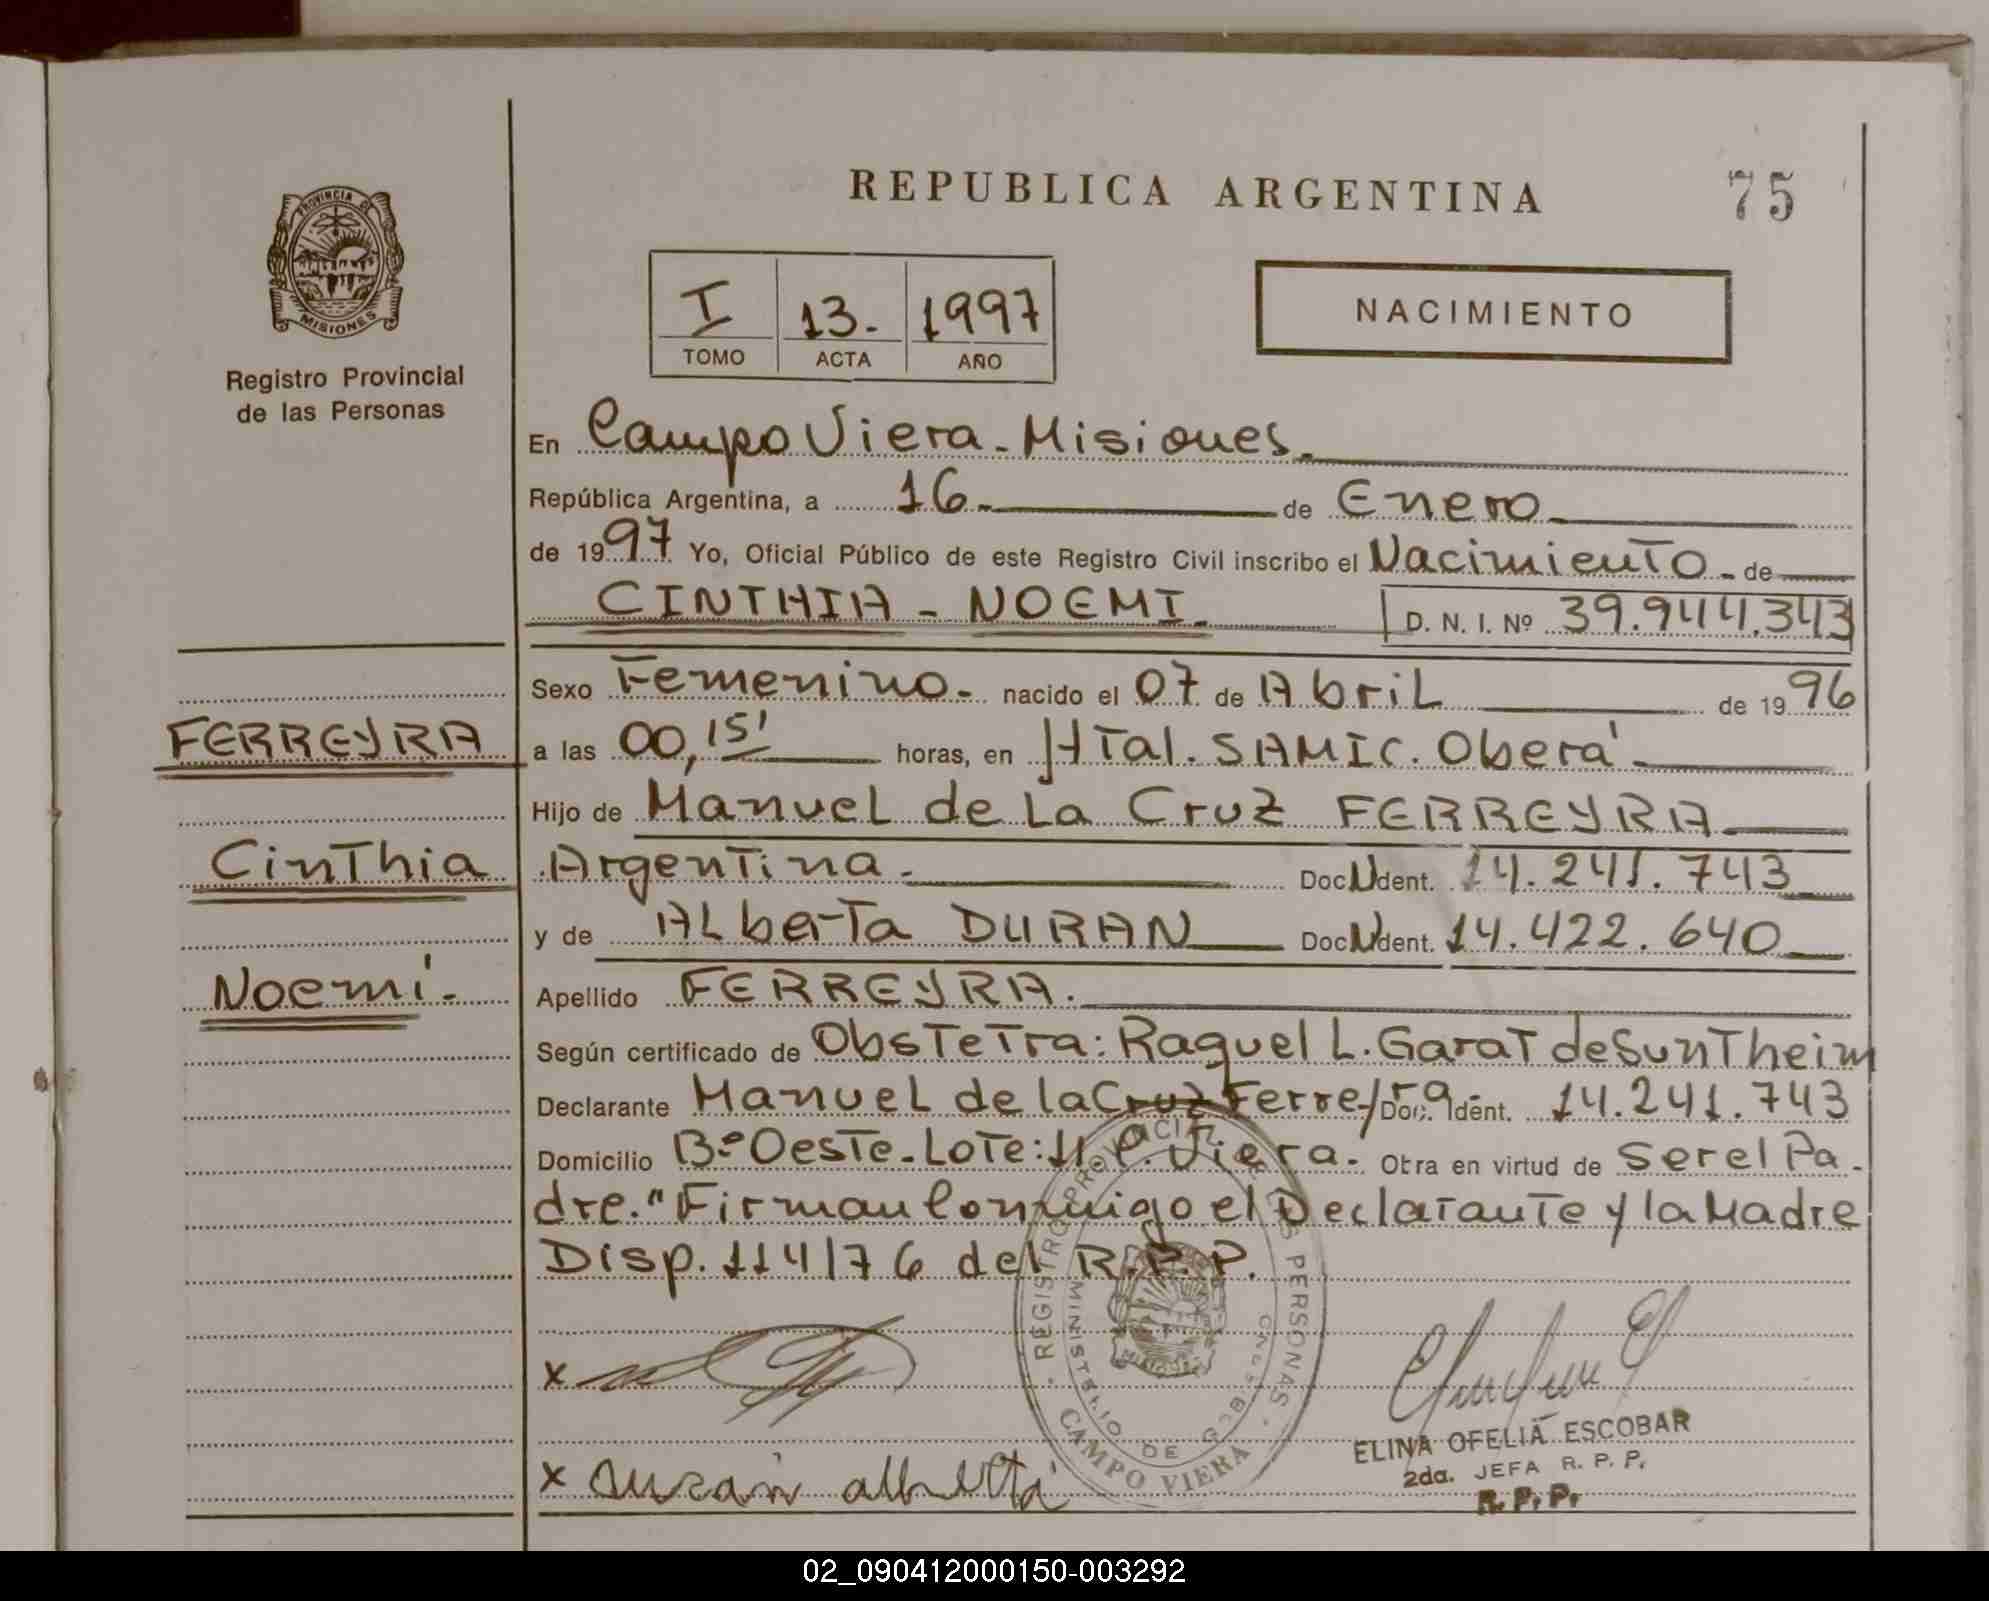 REPUBLICA ARGENTINA
75
PROVINCIA DE
MISIONES
Registro Provincial
de las Personas
I 13. 1997
TOMO ACTA AÑO
NACIMIENTO
En Campo Viera - Misiones.
República Argentina, a 16 de Enero
de 1997 Yo, Oficial Público de este Registro Civil inscribo el Nacimiento - de
CINTHIA - NOEMI. D. N. I. Nº 39.944.343
Sexo Femenino - nacido el 07 de Abril de 1996
FERREYRA
a las 00,15' horas, en HTal. SAMIC. Oberá
Hijo de Manuel de La Cruz FERREYRA
Cinthia
Argentina. Doc N Ident. 14.241.743
y de ALberta DURAN Doc N Ident. 14.422.640
Noemí.
Apellido FERREYRA.
Según certificado de Obstetra: Raquel L. Garat de Suntheim
Declarante Manuel de la Cruz Ferreyra Doc. Ident. 14.241.743
Domicilio Bº Oeste - Lote: 11 C. Viera. Otra en virtud de Ser el Pa-
dre." Firman Conmigo el Declarante y la Madre
Disp. 114/76 del R.P.P.
REGISTRO PROVINCIAL DE LAS PERSONAS
MINISTERIO DE GOBIERNO
MISIONES
CAMPO VIERA
x
ELINA OFELIA ESCOBAR
2da. JEFA R. P. P.
R. P. P.
x Duran alberta
02_090412000150-003292